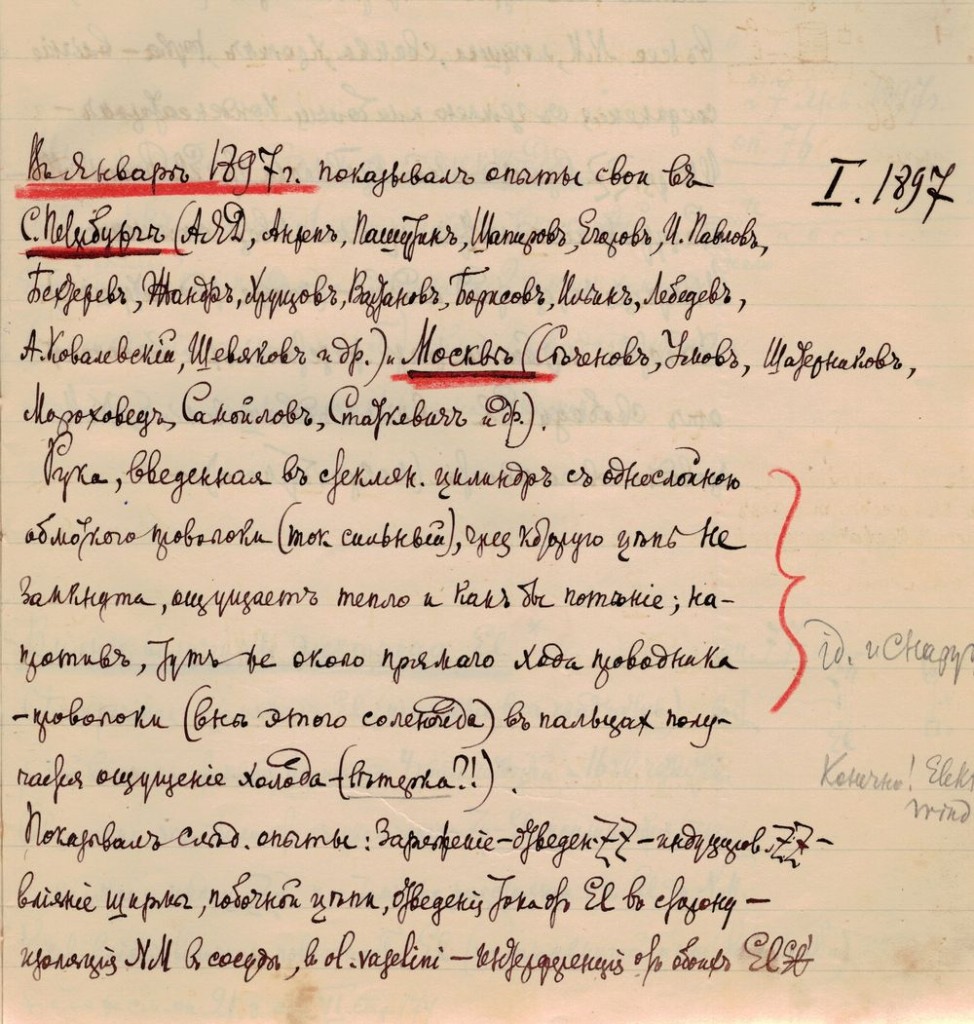 Въ Январѣ 1897 г. показывалъ опыты свои въ
I. 1897
С. Петербургѣ (АЯД, Анрепъ, Пашутинъ, Шапировъ, Егоровъ, И. Павловъ,
Бехтеревъ, Жандръ, Хрущовъ, Ваттановъ, Борисовъ, Ильинъ, Лебедевъ,
А. Ковалевскій, Шевяковъ и др.) и Москвѣ (Сѣченовъ, Умовъ, Шатерниковъ,
Мороховецъ, Самойловъ, Статкевичъ и др.).
Рука, введенная въ стеклян. цилиндръ съ однослойною
обмоткого проволоки (ток сильный), чрез которую цѣпь не
замкнута, ощущаетъ тепло и какъ бы потѣніе; на-
противъ, тутъ же около прямаго хода проводника
-проволоки (внѣ этого соленоида) въ пальцах полу-
чается ощущеніе холода - (вѣтерка?!).
id. и снару
Конечно! Elekt
wind
Показывалъ слѣд. опыты: Заряженіе - отведен. - индуциров. -
вліяніе ширмы, побочной цѣпи, отведенія тока от El въ сторону -
изоляція NM в сосуды, в ol. vaselini - интерференція от обоихъ El